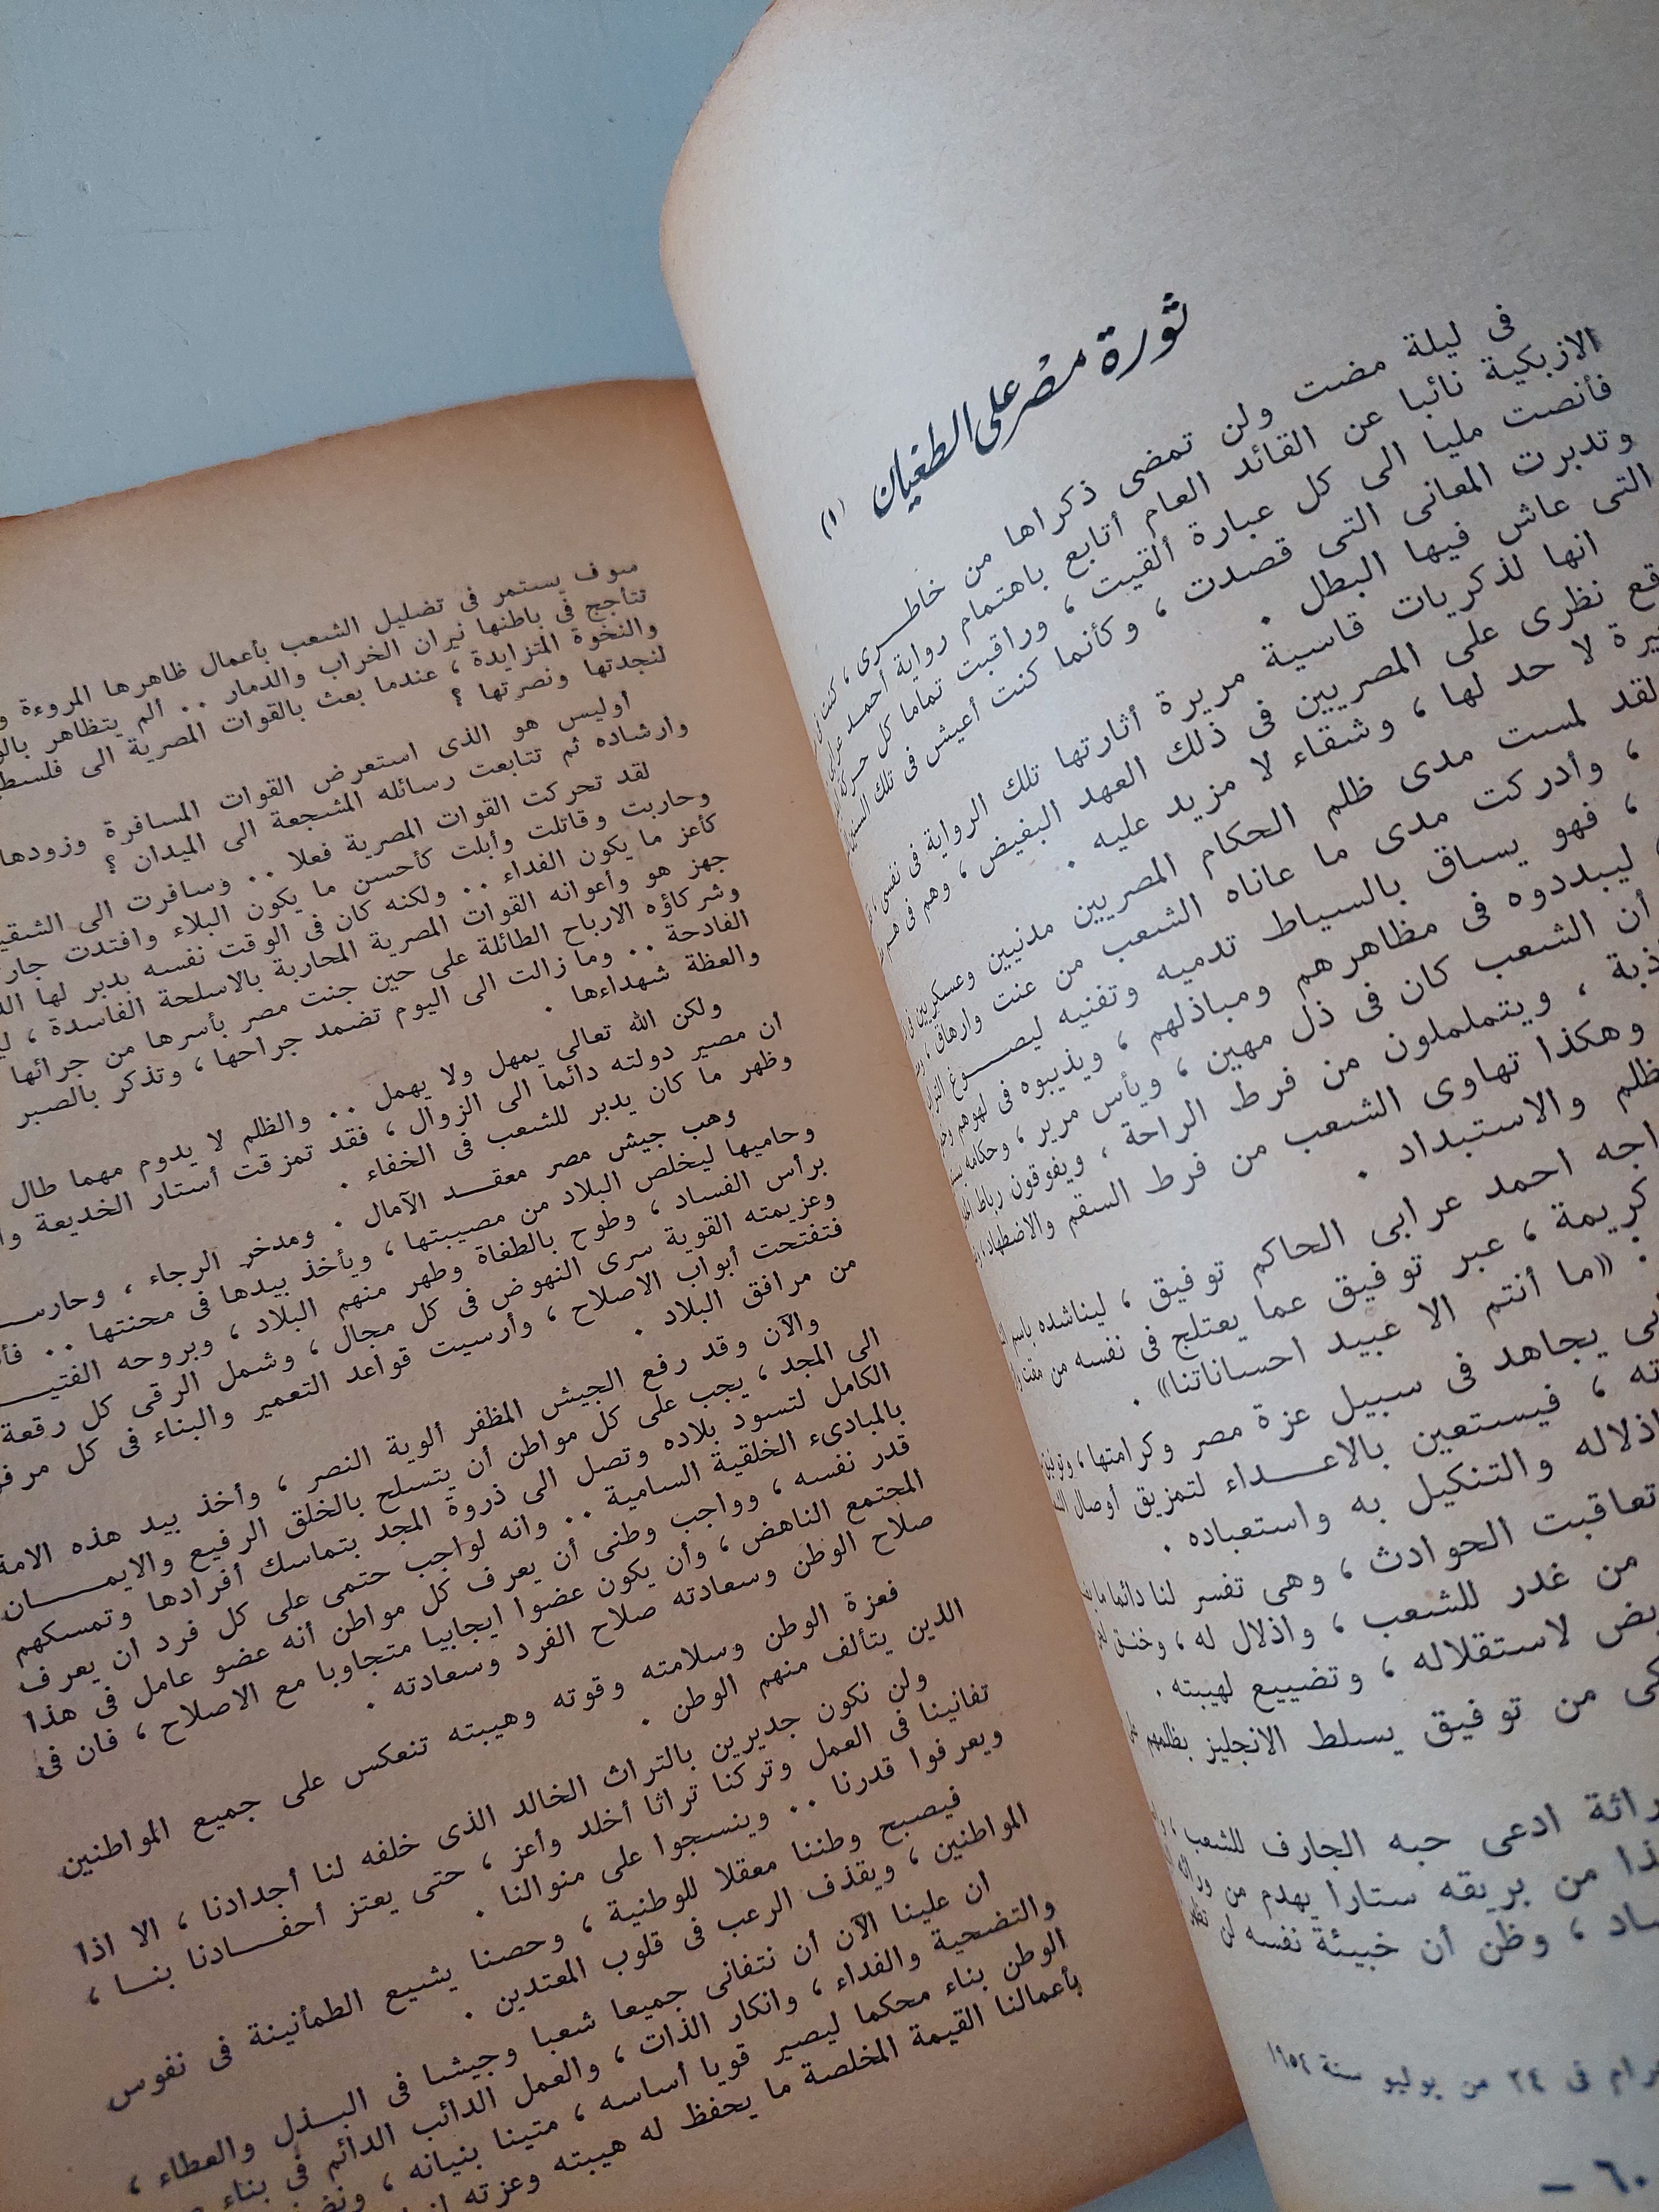 ثورة مصر على الطغيان (١)
فى ليلة مضت ولن تمضى ذكراها من خاطرى ، كنت فى
الازبكية نائبا عن القائد العام أتابع باهتمام رواية أحمد عرابى
فأنصت مليا الى كل عبارة ألقيت ، وراقبت تماما كل حركة
وتدبرت المعانى التى قصدت ، وكأنما كنت أعيش فى تلك السنين
التى عاش فيها البطل .
انها لذكريات قاسية مريرة أثارتها تلك الرواية فى نفسى ،
نظرى على المصريين فى ذلك العهد البغيض ، وهم فى
لا حد لها ، وشقاء لا مزيد عليه .
لقد لمست مدى ظلم الحكام المصريين مدنيين وعسكريين
، وأدركت مدى ما عاناه الشعب من عنت وارهاق ،
، فهو يساق بالسياط تدميه وتفنيه ليصوغ
ليبددوه فى مظاهرهم ومباذلهم ، ويذيبوه فى لهوهم
أن الشعب كان فى ذل مهين ، ويأس مرير ، وحكامه
، ويتململون من فرط الراحة ، ويفوقون رباط
وهكذا تهاوى الشعب من فرط السقم والاضطهاد ،
والاستبداد .
احمد عرابى الحاكم توفيق ، ليناشده باسم
كريمة ، عبر توفيق عما يعتلج فى نفسه من مقت
: «ما أنتم الا عبيد احساناتنا» .
يجاهد فى سبيل عزة مصر وكرامتها ، وتوفيق
، فيستعين بالاعداء لتمزيق أوصال
اذلاله والتنكيل به واستعباده .
تعاقبت الحوادث ، وهى تفسر لنا دائما ما
من غدر للشعب ، واذلال له ، وخنق
لاستقلاله ، وتضييع لهيبته .
من توفيق يسلط الانجليز بظلمهم
ادعى حبه الجارف للشعب ،
من بريقه ستارا يهدم من ورائه
، وظن أن خبيئة نفسه لن
فى ٢٤ من يوليو سنة ١٩٥٤
٦٠ –
سوف يستمر فى تضليل الشعب بأعمال ظاهرها المروءة
تتأجج فى باطنها نيران الخراب والدمار .. ألم يتظاهر
والنخوة المتزايدة ، عندما بعث بالقوات المصرية الى
لنجدتها ونصرتها ؟
أوليس هو الذى استعرض القوات المسافرة وزودها
وارشاده ثم تتابعت رسائله المشجعة الى الميدان ؟
لقد تحركت القوات المصرية فعلا .. وسافرت الى
وحاربت وقاتلت وأبلت كأحسن ما يكون البلاء وافتدت
كأعز ما يكون الفداء .. ولكنه كان فى الوقت نفسه يدبر لها
جهز هو وأعوانه القوات المصرية المحاربة بالاسلحة الفاسدة ،
وشركاؤه الارباح الطائلة على حين جنت مصر بأسرها من جرائها
الفادحة .. وما زالت الى اليوم تضمد جراحها ، وتذكر بالصبر
والعظة شهداءها .
ولكن الله تعالى يمهل ولا يهمل .. والظلم لا يدوم مهما طال
أن مصير دولته دائما الى الزوال ، فقد تمزقت أستار الخديعة
وظهر ما كان يدبر للشعب فى الخفاء .
وهب جيش مصر معقد الآمال . ومدخر الرجاء ،
وحاميها ليخلص البلاد من مصيبتها ، ويأخذ بيدها فى محنتها ..
برأس الفساد ، وطوح بالطغاة وطهر منهم البلاد ، وبروحه
وعزيمته القوية سرى النهوض فى كل مجال ، وشمل الرقى كل رقعة
فتفتحت أبواب الاصلاح ، وأرسيت قواعد التعمير والبناء فى كل
من مرافق البلاد .
والآن وقد رفع الجيش المظفر ألوية النصر ، وأخذ بيد هذه الامة
الى المجد ، يجب على كل مواطن أن يتسلح بالخلق الرفيع والايمان
الكامل لتسود بلاده وتصل الى ذروة المجد بتماسك أفرادها وتمسكهم
بالمبادىء الخلقية السامية .. وانه لواجب حتمى على كل فرد ان يعرف
قدر نفسه ، وواجب وطنى أن يعرف كل مواطن أنه عضو عامل فى هذا
المجتمع الناهض ، وأن يكون عضوا ايجابيا متجاوبا مع الاصلاح ، فان فى
صلاح الوطن وسعادته صلاح الفرد وسعادته .
فعزة الوطن وسلامته وقوته وهيبته تنعكس على جميع المواطنين
الذين يتألف منهم الوطن .
ولن نكون جديرين بالتراث الخالد الذى خلفه لنا أجدادنا ، الا اذا
تفانينا فى العمل وتركنا تراثا أخلد وأعز ، حتى يعتز أحفادنا بنا ،
ويعرفوا قدرنا .. وينسجوا على منوالنا .
فيصبح وطننا معقلا للوطنية ، وحصنا يشيع الطمأنينة فى نفوس
المواطنين ، ويقذف الرعب فى قلوب المعتدين .
ان علينا الآن أن نتفانى جميعا شعبا وجيشا فى البذل والعطاء ،
والتضحية والفداء ، وانكار الذات ، والعمل الدائب الدائم فى بناء
الوطن بناء محكما ليصير قويا أساسه ، متينا بنيانه ،
بأعمالنا القيمة المخلصة ما يحفظ له هيبته وعزته